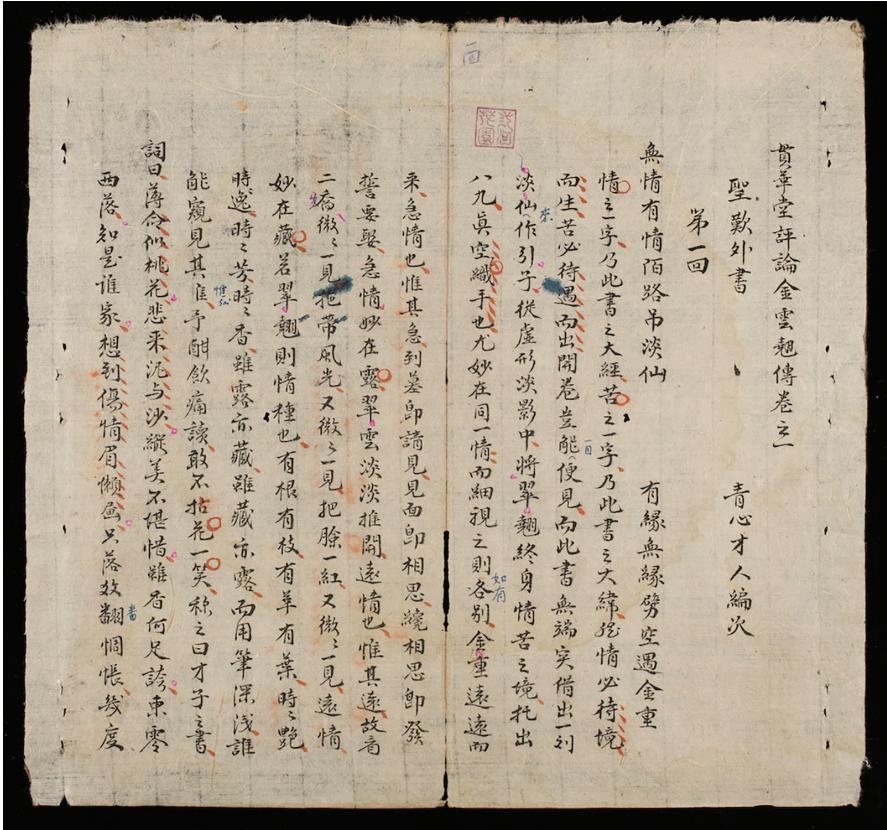 貫華堂評論金雲翹傳卷之一
聖歎外書 青心才人編次
第一回
無情有情陌路吊淡仙 有緣無緣劈空遇金重
情之一字乃此書之大經苦之一字乃此書之大緯 情必待境
而生苦必待遇而出開卷豈能便見而此書無端突借出一刘
淡仙作引子從虛形淡影中將翠翹終身情苦之境托出
八九真空纖手也尤妙在同一情而細視之則各別金重遠遠而
来急情也惟其急到墓即請見見面即相思纔相思即發
誓要娶急情妙在露翠雲淡淡推開遠情也惟其遠故言
二喬微〻一見拖帶風光又微〻一見把臉一紅又微〻一見遠情
妙在藏若翠翹則情種也有根有枝有草有葉時〻艷
時〻逸時〻芳時〻香雖露亦藏雖藏亦露而用筆深淺誰
能窺見其 予酣飲痛讀敢不拈花一笑称之曰才子之書
詞曰薄命似桃花悲来泥与沙縱美不堪惜雖香何足誇東零
西落知是誰家想到傷情眉懶畫只落效翻惆悵幾度